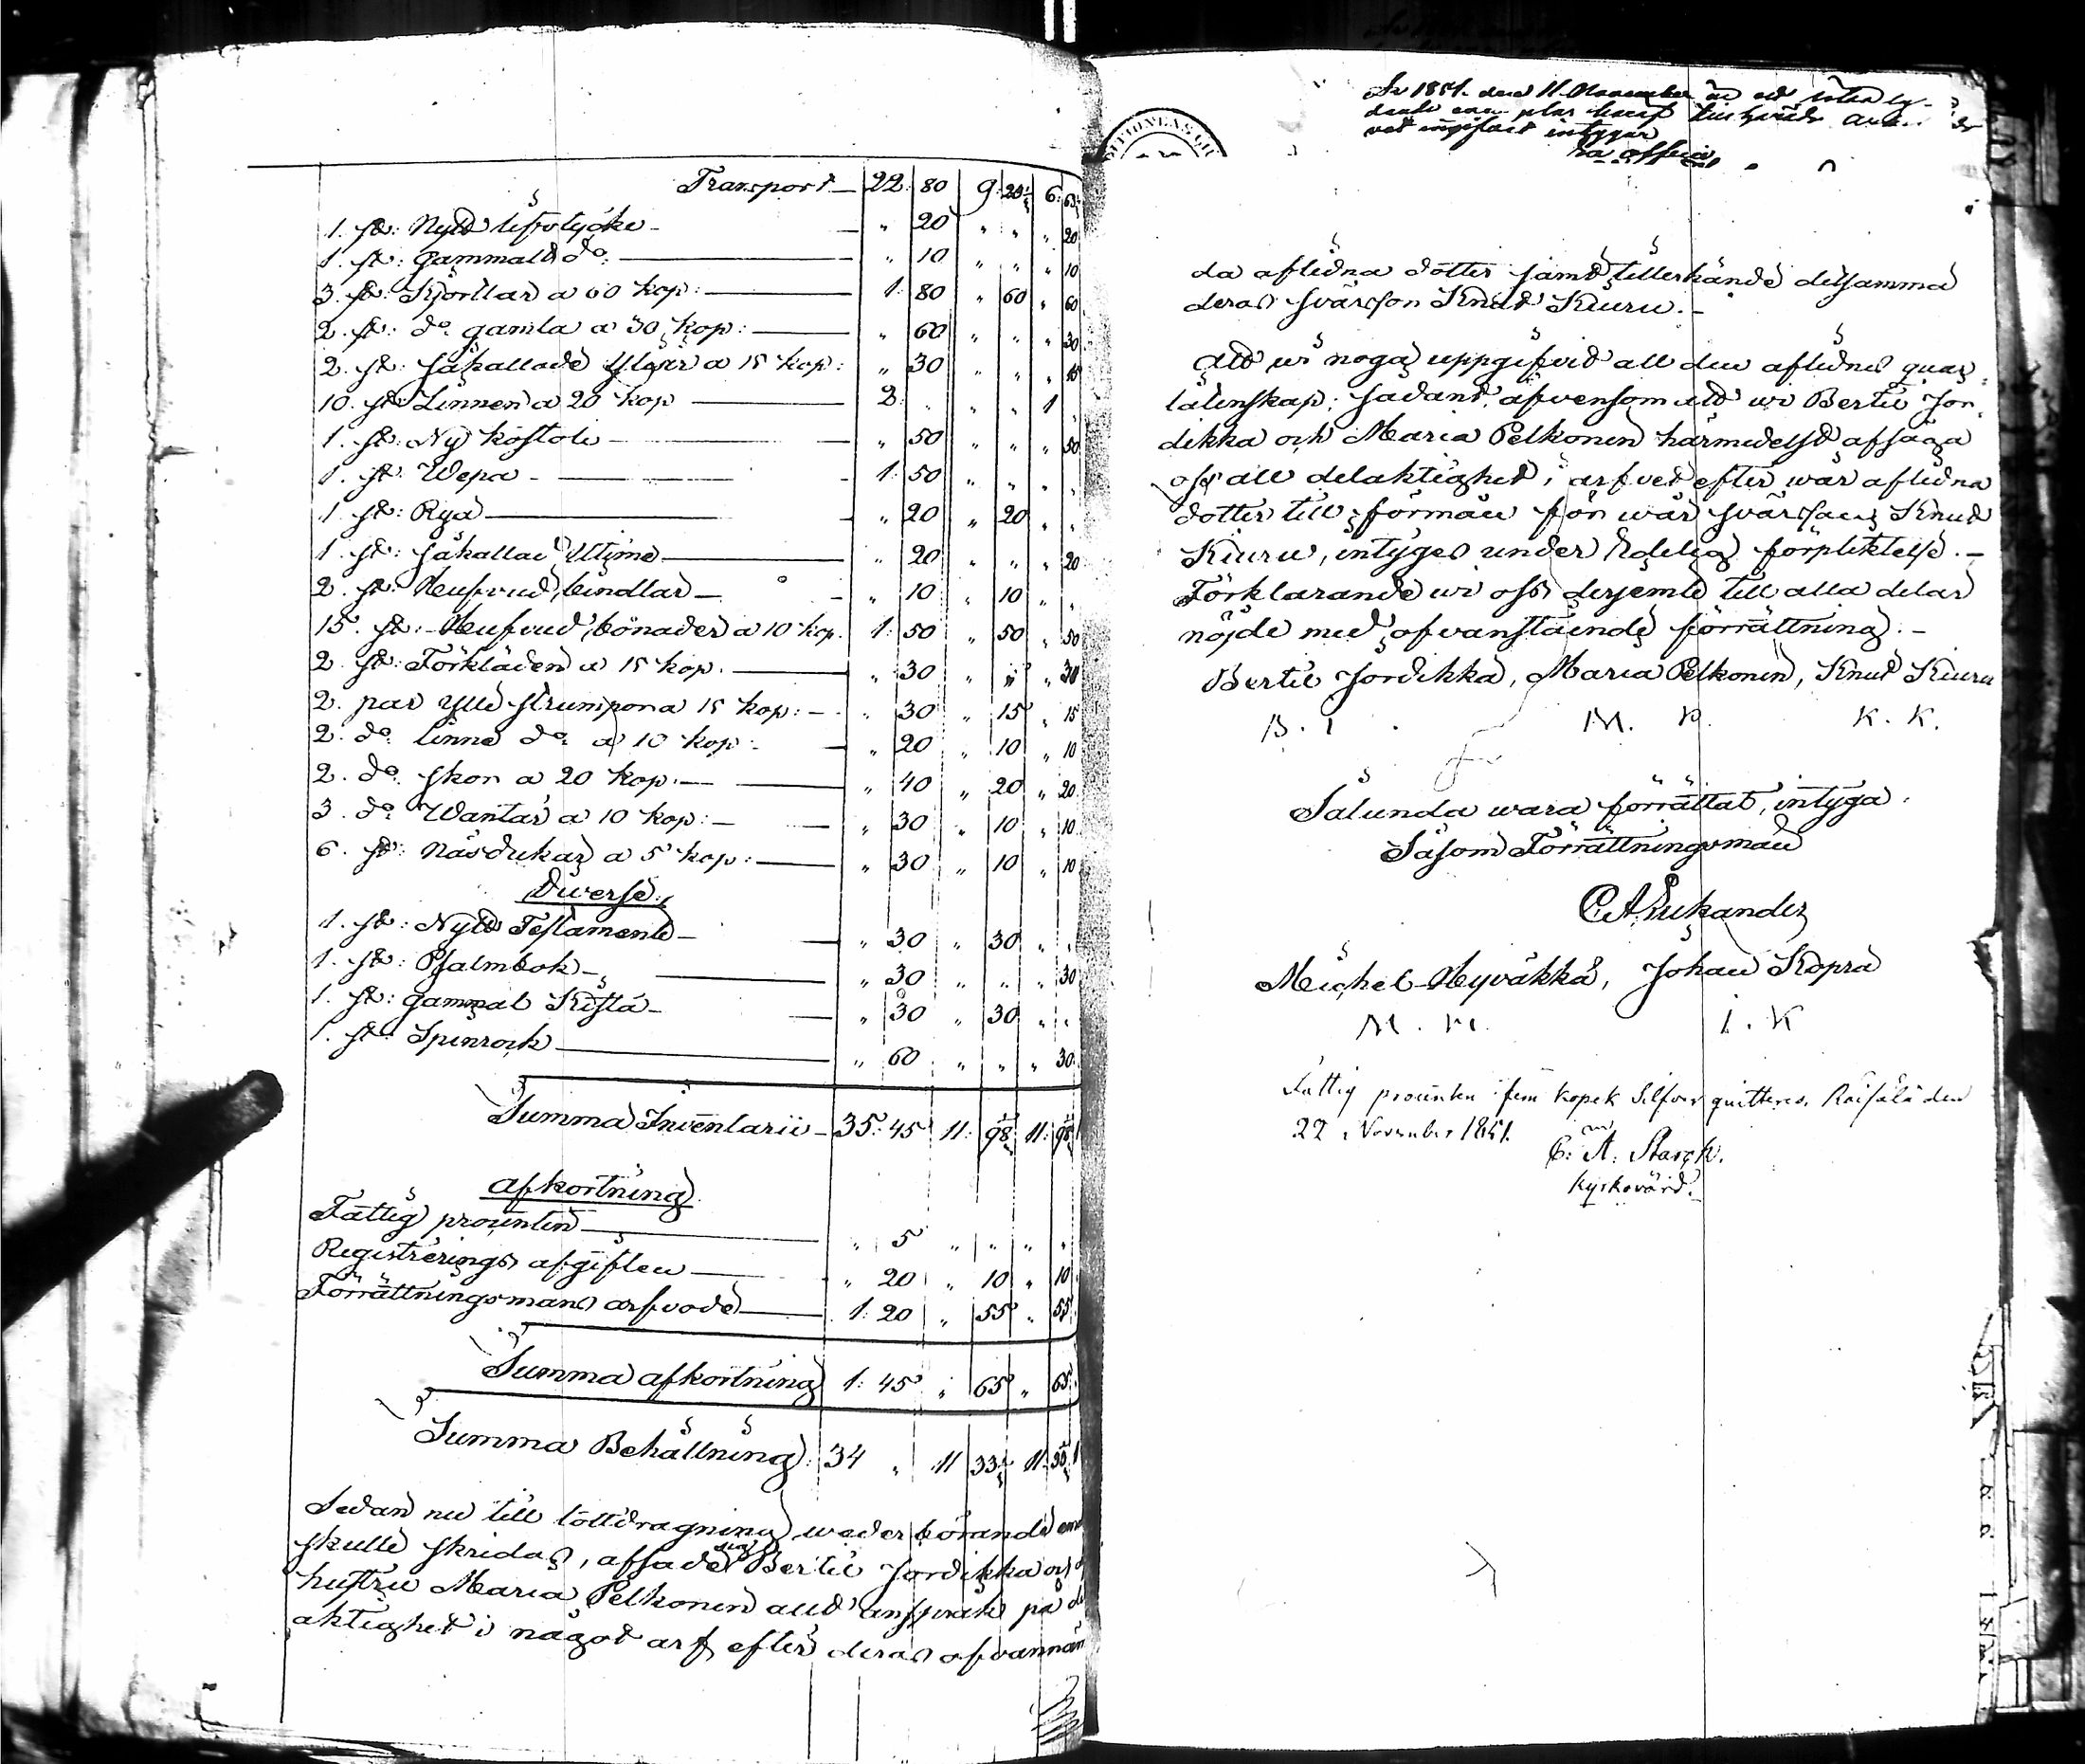 Transport 22: 80 9: 20½ 6: 63½
1. st: Nytt lifstycke 20 20
1. st: gammalt do: 10 10
3. st: Kjortlar a 60 kop: 1: 80 60 60
2. st: do gamla a 30 kop: 60 30
2. st: såkallade a 15 kop: 30 15
10. st: Linnen a 20 kop 2 1
1. st: Ny 50 50
1. st: Wepa 1: 50
1. st: Rya 20 20
1. st: såkallad 20 20
2. st: Hufvud bindlar 10 10
15. st: Hufvud bonader a 10 kop. 1: 50 50 50
2. st: Förkläden a 15 kop. 30 30
2. par ylle strumpor a 15 kop: 30 15 15
2. do linne do a 10 kop: 20 10 10
2. do skor a 20 kop: 40 20 20
3. do Wantar a 10 kop: 30 10 10
6. st: näsdukar a 5 kop: 30 10 10
Diverse:
1. st: Nytt Testamente 30 30
1. st: Psalmbok 30 30
1. st: gammal Kista 30 30
1. st: Spinrock 60 30
Summa Inventarii 35: 45 11: 98½ 11: 98½
afkortning
Fattig procenten 5
Registrerings afgiften 20 10 10
Förrättningsmans arfvode 1: 20 55 55
Summa afkortning 1: 45 65 65
Summa Behållning: 34 11 33½ 11: 33½
Sedan nu till lottdragning wederbörande
skulle skridas, afsade sig Bertil Jordikka och
hustru Maria Pelkonen allt anspråk på
aktighet i något arf efter deras ofvannäm
År 1851. den 11. November
vet ingifvet intygar
Ex officio
da aflidna dotter samt tillerkände detsamma
deras svärson Knut Kiuru.
Att wi noga uppgifvit all den aflidnes qvar-
låtenskap; sådant, äfvensom att wi Bertil Jor-
dikka och Maria Pelkonen härmedelst afsäga
oss all delaktighet i arfvet efter wår aflidna
dotter till förmån för wår svärson Knut
Kiuru, intygas under Edelig förpliktelse.
Förklarande wi oss derjemte till alla delar
nöjde med ofvanstående förrättning.
Bertil Jordikka, Maria Pelkonen, Knut Kiuru
B. I M. P. K. K.
Sålunda wara förrättat, intyga.
Såsom Förrättningsman
Michel Hyväkkä, Johan Kopra
M. H. I. K
Fattig procenten fem kopek Silfver quitteras, Räisälä den
22 November 1851.
C: A: Starck.
kyrkovärd.